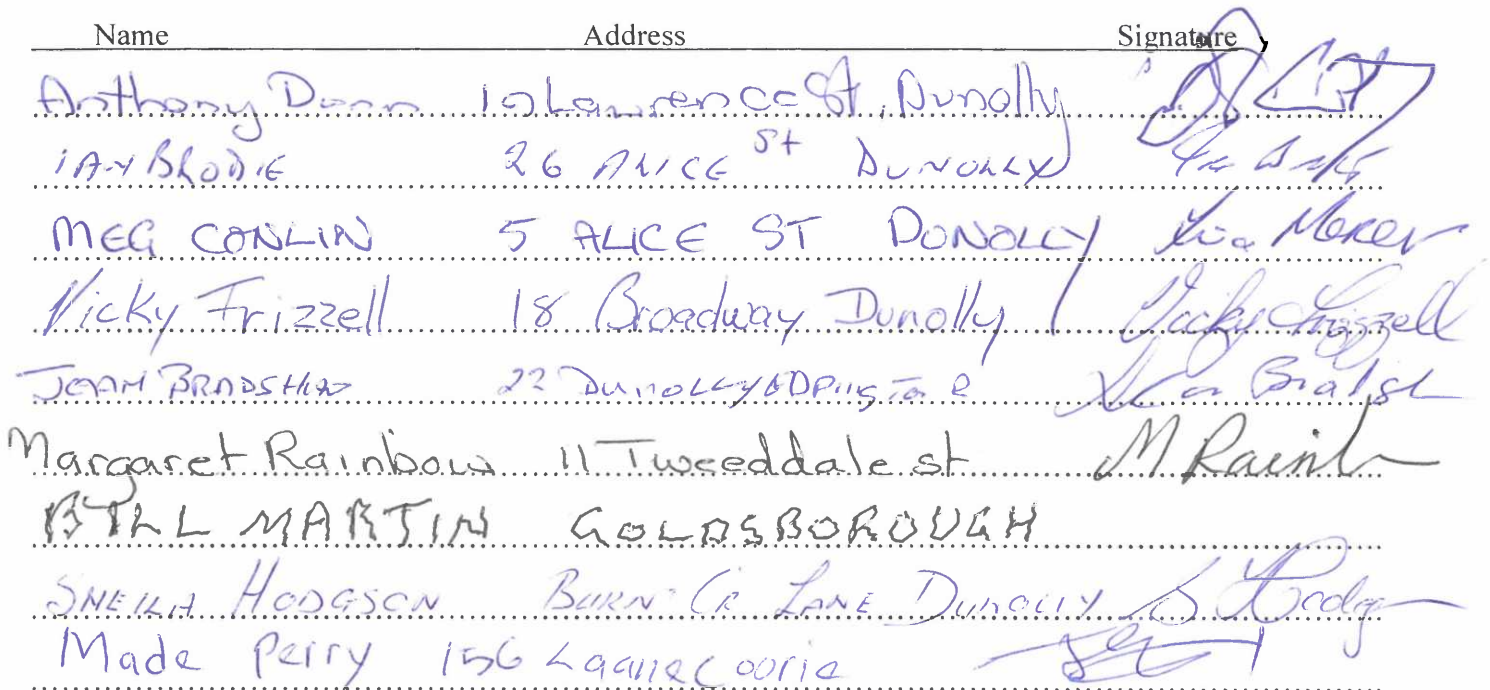 Name Address Signature
Anthony Dorn 19 Lawrence St, Dunolly
IAN BRODIE 26 ALICE St DUNOLLY
MEG CONLIN 5 ALICE ST DONOLLY
Vicky Frizzell 18 Broadway Dunolly Vicky Frizzell
JOAN BRADSHAW 22 DUNOLLY EDDINGTON R
Margaret Rainbow 11 Tweeddale st M Rainb
BILL MARTIN GOLDSBOROUGH
SHEILA HODGSON BURNT CK LANE DUNOLLY S Hodg
Made Perry 156 Laanecoorie